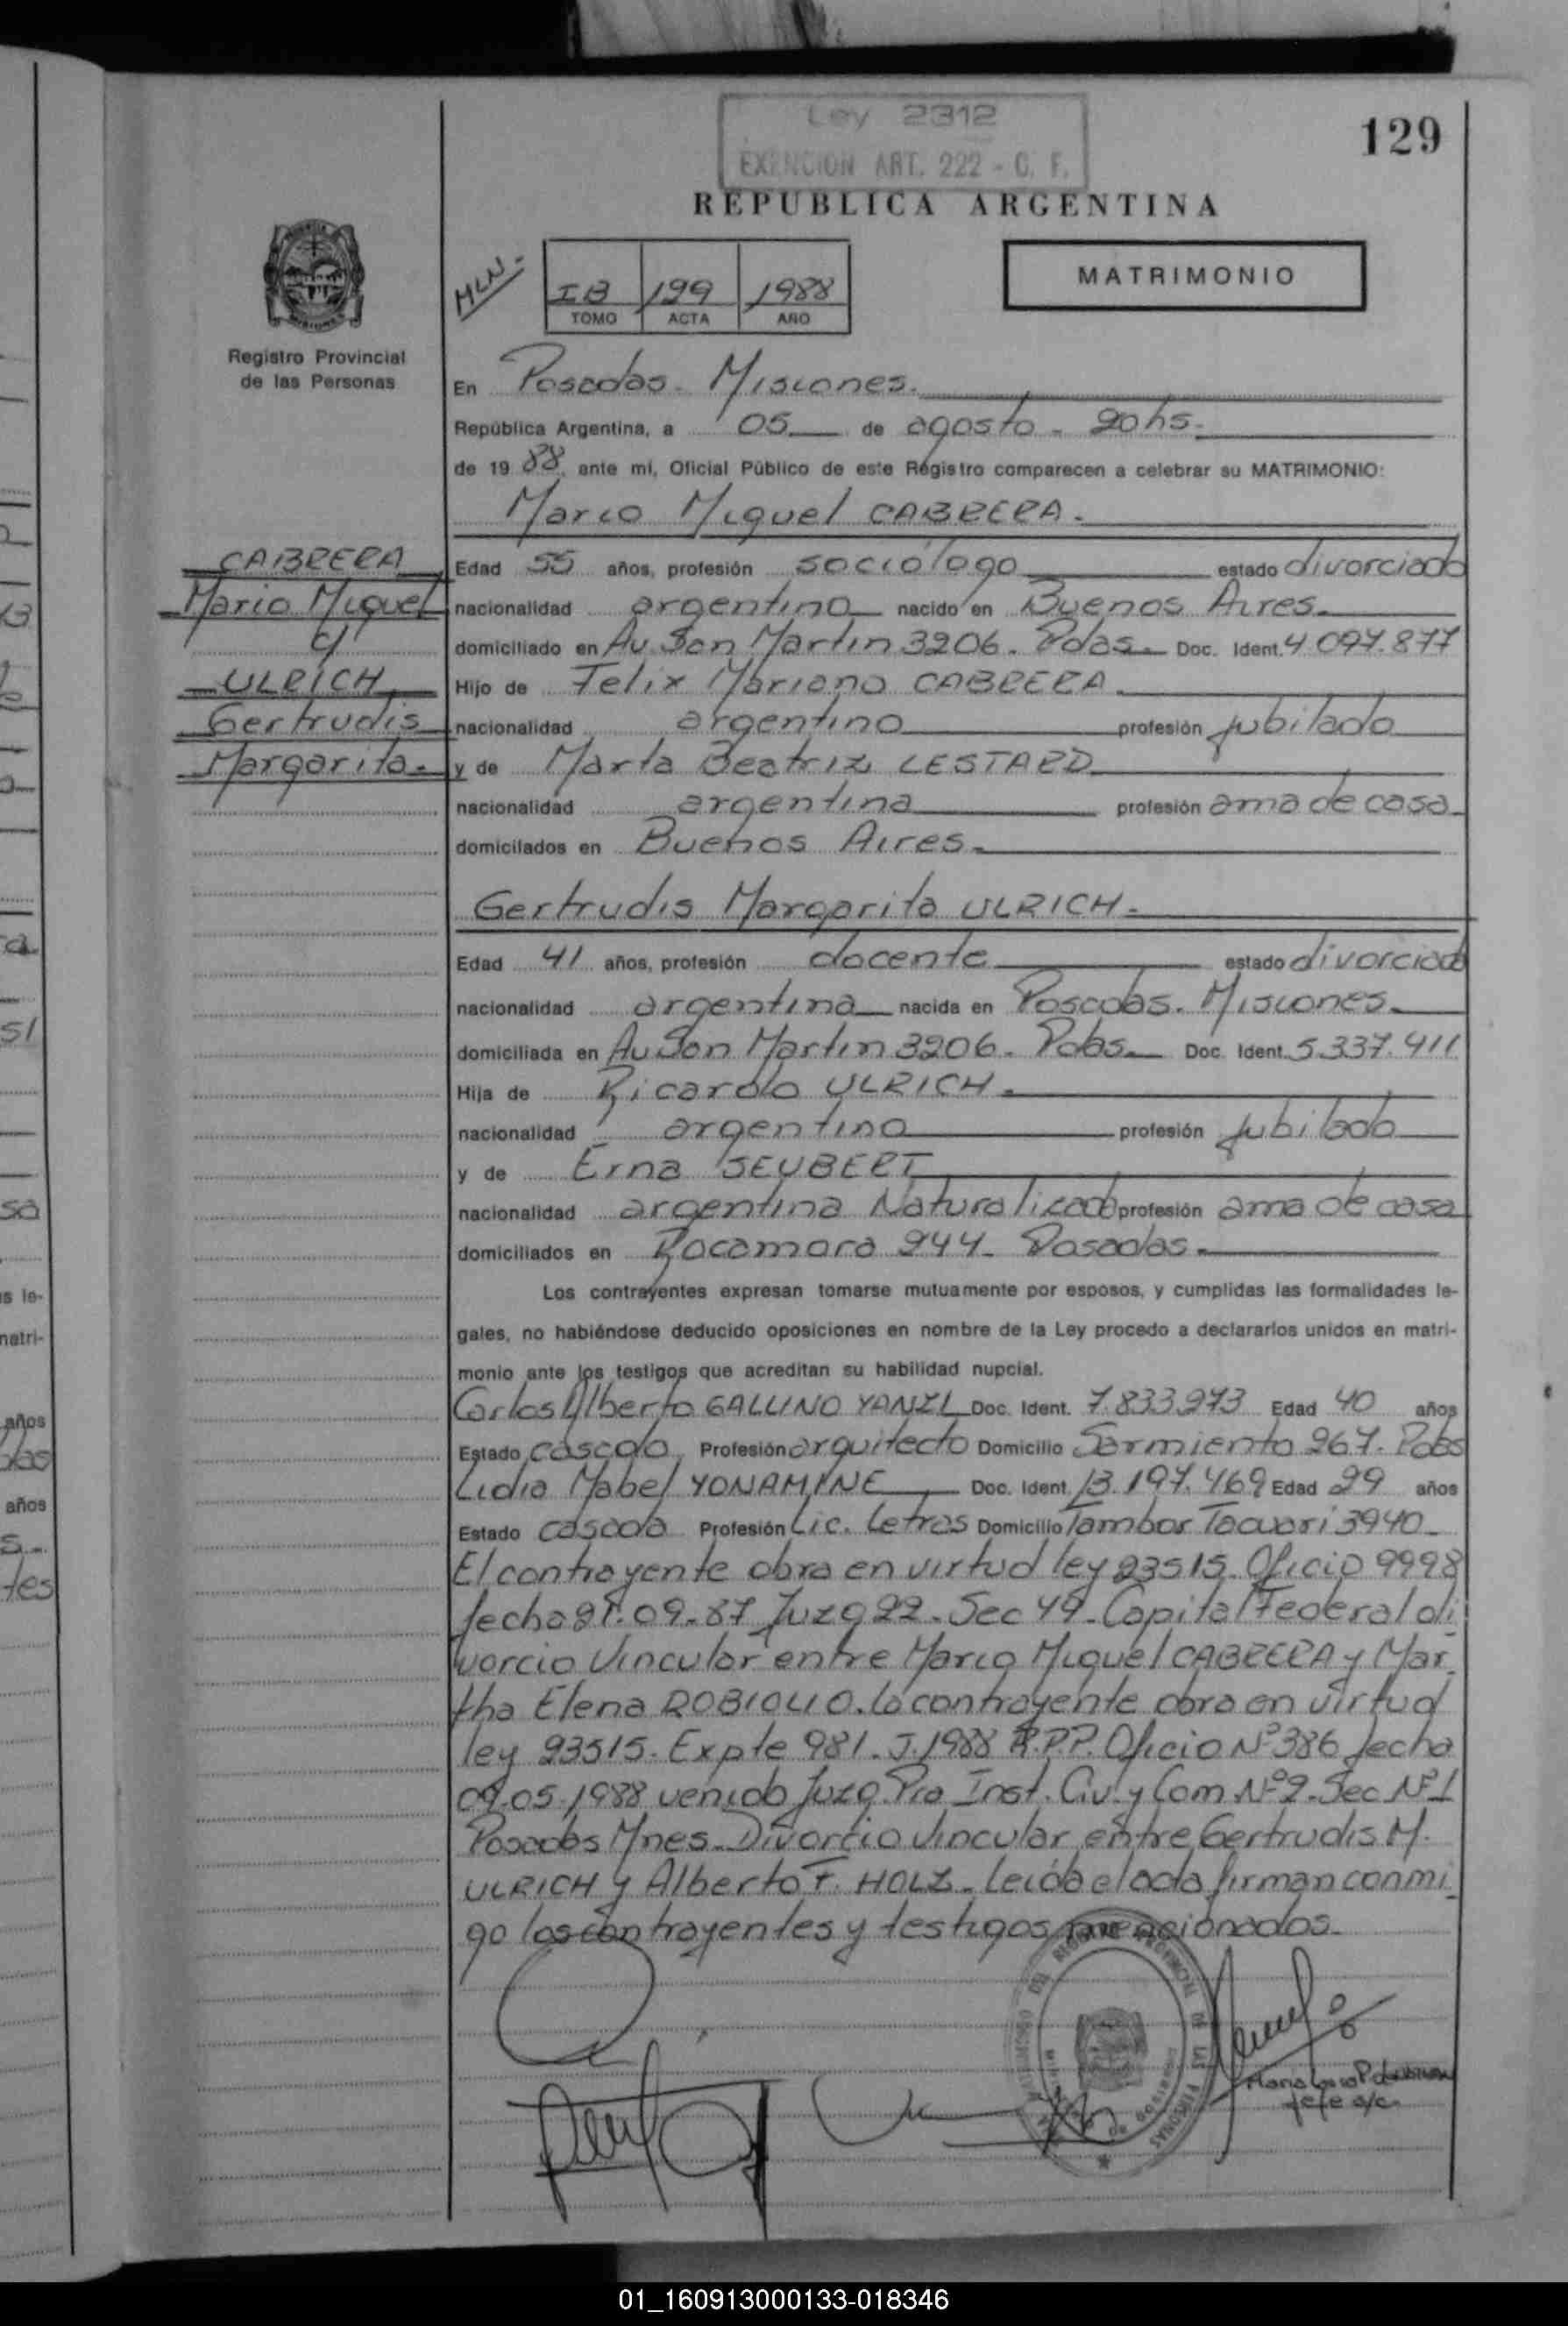 Ley 2312
EXENCION ART. 222 - C. F.
129
REPUBLICA ARGENTINA
MLN.-
IB 199 1988
TOMO ACTA AÑO
MATRIMONIO
Registro Provincial
de las Personas
En Posadas. Misiones.
República Argentina, a 05 de agosto - 20hs.
de 19 88, ante mí, Oficial Público de este Registro comparecen a celebrar su MATRIMONIO:
Mario Miguel CABRERA.
CABRERA
Mario Miguel
c/
ULRICH
Gertrudis
Margarita.
Edad 55 años, profesión sociólogo estado divorciado
nacionalidad argentino nacido en Buenos Aires.
domiciliado en Av. San Martin 3206. Pdas. Doc. Ident. 4 097.877
Hijo de Felix Mariano CABRERA
nacionalidad argentino profesión jubilado
y de Marta Beatriz LESTARD
nacionalidad argentina profesión ama de casa
domicilados en Buenos Aires.
Gertrudis Margarita ULRICH.
Edad 41 años, profesión docente estado divorciada
nacionalidad argentina nacida en Posadas. Misiones.
domiciliada en Av San Martin 3206. Pdas. Doc. Ident. 5.337.411
Hija de Ricardo ULRICH.
nacionalidad argentino profesión jubilado
y de Erna SEUBERT
nacionalidad argentina Naturalizada profesión ama de casa
domiciliados en Rocamora 244. Posadas.
Los contrayentes expresan tomarse mutuamente por esposos, y cumplidas las formalidades le-
gales, no habiéndose deducido oposiciones en nombre de la Ley procedo a declararlos unidos en matri-
monio ante los testigos que acreditan su habilidad nupcial.
Carlos Alberto GALLINO YANZI Doc. Ident. 7.833.273 Edad 40 años
Estado casado Profesión arquitecto Domicilio Sarmiento 267. Pdas
Lidia Mabel YONAMINE Doc. Ident. 13.197.469 Edad 29 años
Estado casada Profesión Lic. Letras Domicilio Tambor Tacuari 3940
El contrayente obra en virtud ley 23515. Oficio 9998
fecha 21.09.87 Juzg 22. Sec 49. Capital Federal di
vorcio Vincular entre Mario Miguel CABRERA y Mar
tha Elena ROBIOLIO. La contrayente obra en virtud
ley 23515. Expte 981. J. 1988 R.P.P. Oficio Nº 386 fecha
09.05.1988 venido Juzg. Pra Inst. Civ. y Com Nº 2. Sec Nº 1
Posadas Mnes. Divorcio Vincular entre Gertrudis M.
ULRICH y Alberto F. HOLZ. Leída el acta firman conmi
go los contrayentes y testigos mencionados.
jefe a/c.
01_160913000133-018346